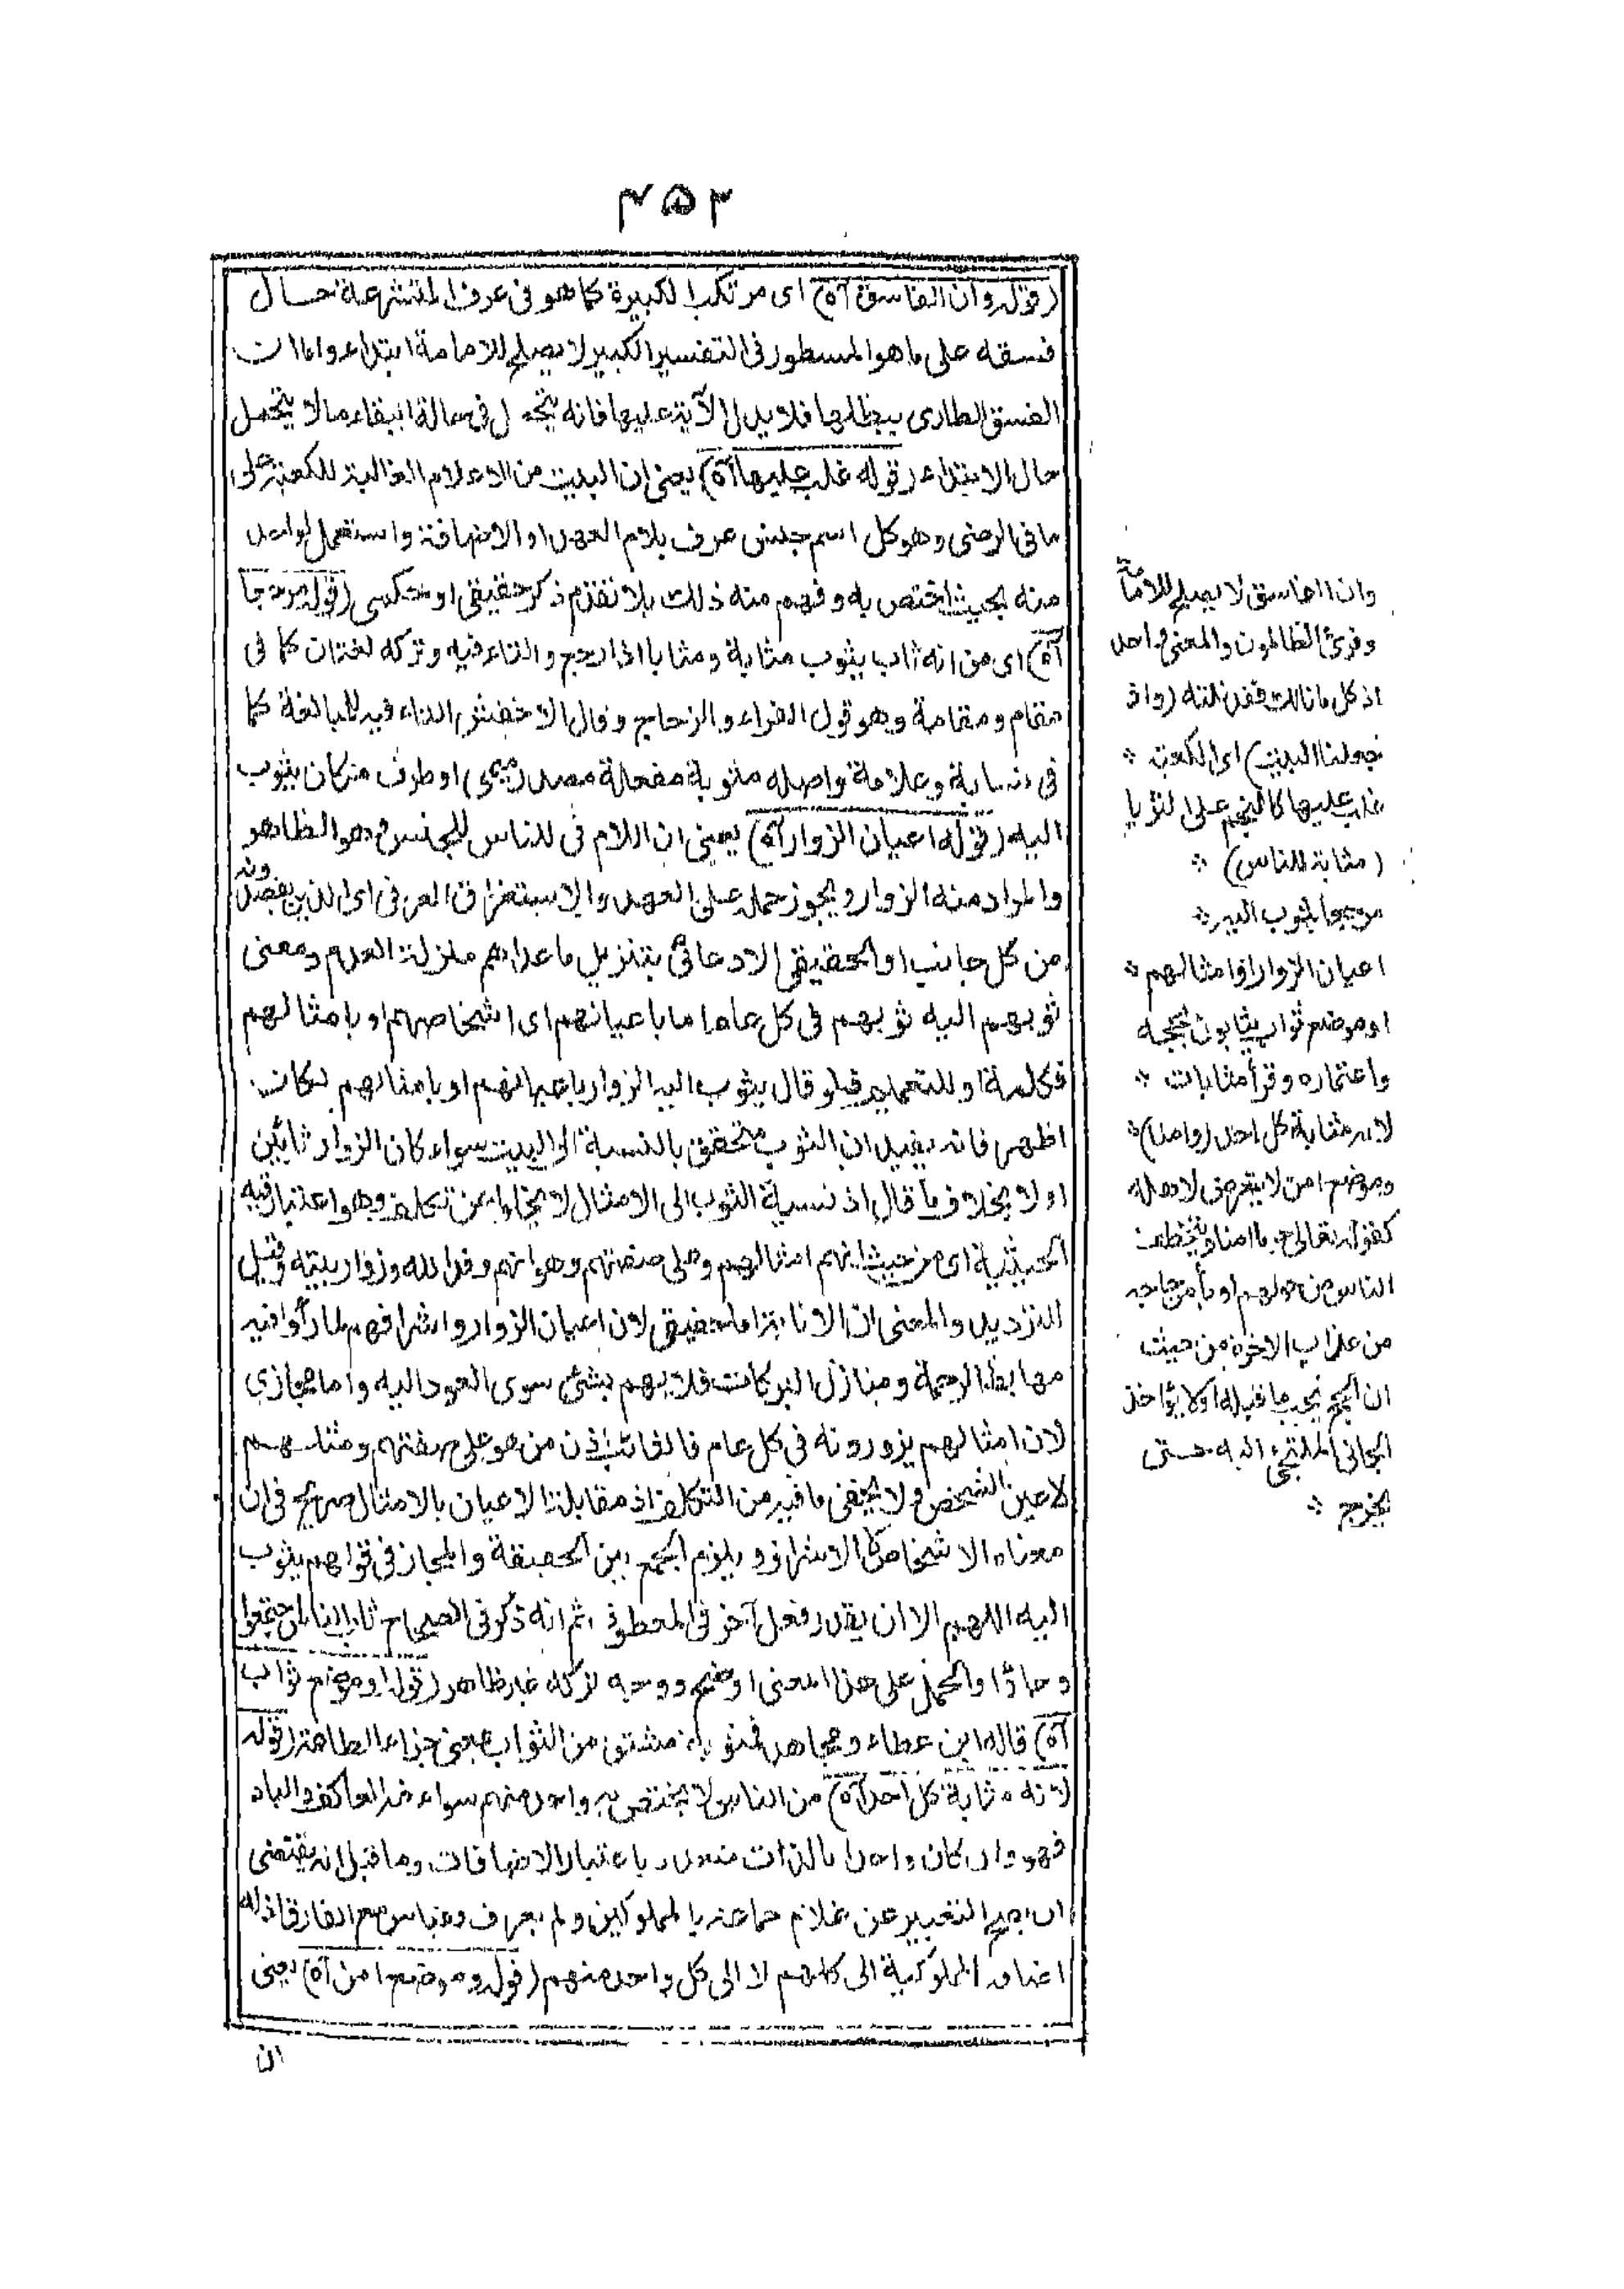 ٤٥٢
(قوله وان الفاسق آه) اى مرتكب الكبيرة كما هو فى عرف المتشرعة حال
فسقه على ما هو المسطور فى التفسير الكبير لا يصلح للامامة ابتداء واما ان
الفسق الطارى يبطلها فلا يدل الآية عليها فانه يتحمل فى حالة البقاء مالا يتحمل
حال الابتداء (قوله غلب عليها آه) يعنى ان البيت من الاعلام الغالبة للكعبة على
ما فى الرضى وهو كل اسم جنس عرف بلام العهد او الاضافة واستعمل لواحد
منه بحيث اختص به وفهم منه ذلك بلا تقدم ذكر حقيقى او حكمى (قوله مرجعا
آه) اى من انه ثاب يثوب مثابة ومثابا اذا رجع والتاء فيه وتركه لغتان كما فى
مقام ومقامة وهو قول الفراء والزجاج وقال الاخفش التاء فيه للمبالغة كما
فى نسابة وعلامة واصله مثوبة مفعلة مصدر ميمى او ظرف مكان يثوب
اليه (قوله اعيان الزوار آه) يعنى ان اللام فى للناس للجنس وهو الظاهر
والمراد منه الزوار ويجوز حمله على العهد والاستغراق العرفى اى الذين يقصدونه
من كل جانب او الحقيقى الادعائى بتنزيل ما عداهم منزلة العدم ومعنى
ثوبهم اليه ثوبهم فى كل عام اما باعيانهم اى اشخاصهم او بامثالهم
فكلمة او للتعميم فلو قال يثوب اليه الزوار باعيانهم او بامثالهم لكان
اظهر فانه يفيد ان الثوب متحقق بالنسبة الى البيت سواء كان الزوار ثائبين
او لا بخلاف ما قال اذ نسبة الثوب الى الامثال لا يخلو عن تكلف وهو اعتبار قيد
الحيثية اى من حيث انهم امثالهم وعلى صفتهم وهو انهم وفد الله وزوار بيته وقيل
الترديد والمعنى ان الانابة اما حقيقى لان اعيان الزوار واشرافهم لما رأوا فيه
مهابط الرحمة ومنازل البركات فلا يهم بشئ سوى العود اليه واما مجازى
لان امثالهم يزورونه فى كل عام فالثائب اذن من هو على صفتهم ومثلهم
لا عين الشخص ولا يخفى ما فيه من التكلف اذ مقابلة الاعيان بالامثال صريح فى ان
معناه الاشخاص لا الاشراف ويلزم الجمع بين الحقيقة والمجاز فى قولهم يثوب
اليه اللهم الا ان يقدر فعل آخر فى المعطوف ثم انه ذكر فى الصحاح ثاب الناس اجتمعوا
وجاؤا والحمل على هذا المعنى اوضح ووجه تركه غير ظاهر (قوله او موضع ثواب
آه) قاله ابن عطاء ومجاهد فمثوبة مشتق من الثواب بمعنى جزاء الطاعة (قوله
لانه مثابة كل احد آه) من الناس لا يختص به واحد منهم سواء فيه العاكف والباد
فهو وان كان واحدا بالذات متعدد باعتبار الاضافات وما قيل انه يقتضى
ان يصح التعبير عن غلام جماعة بالمملوكين ولم يعرف وقياس مع الفارق اذ له
اضافة المملوكية الى كلهم لا الى كل واحد منهم (قوله وموضع امن آه) يعنى
ان
وان الفاسق لا يصلح للامامة
وقرئ الظالمون والمعنى واحد
اذ كل ما نالك فقد نلته (واذ
جعلنا البيت) اى الكعبة *
غلب عليها كالنجم على الثريا
(مثابة للناس) *
مرجعا يثوب اليه *
اعيان الزوار او امثالهم *
او موضع ثواب يثابون بحجه
واعتماره وقرأ مثابات *
لانه مثابة كل احد (وامنا) *
وموضع امن لا يتعرض لاهله
كقوله تعالى حرما امنا ويتخطف
الناس من حولهم او يأمن حاجه
من عذاب الاخرة من حيث
ان الحج يجب ما قبله او لا يؤاخذ
الجانى الملتجئ اليه حتى
يخرج *